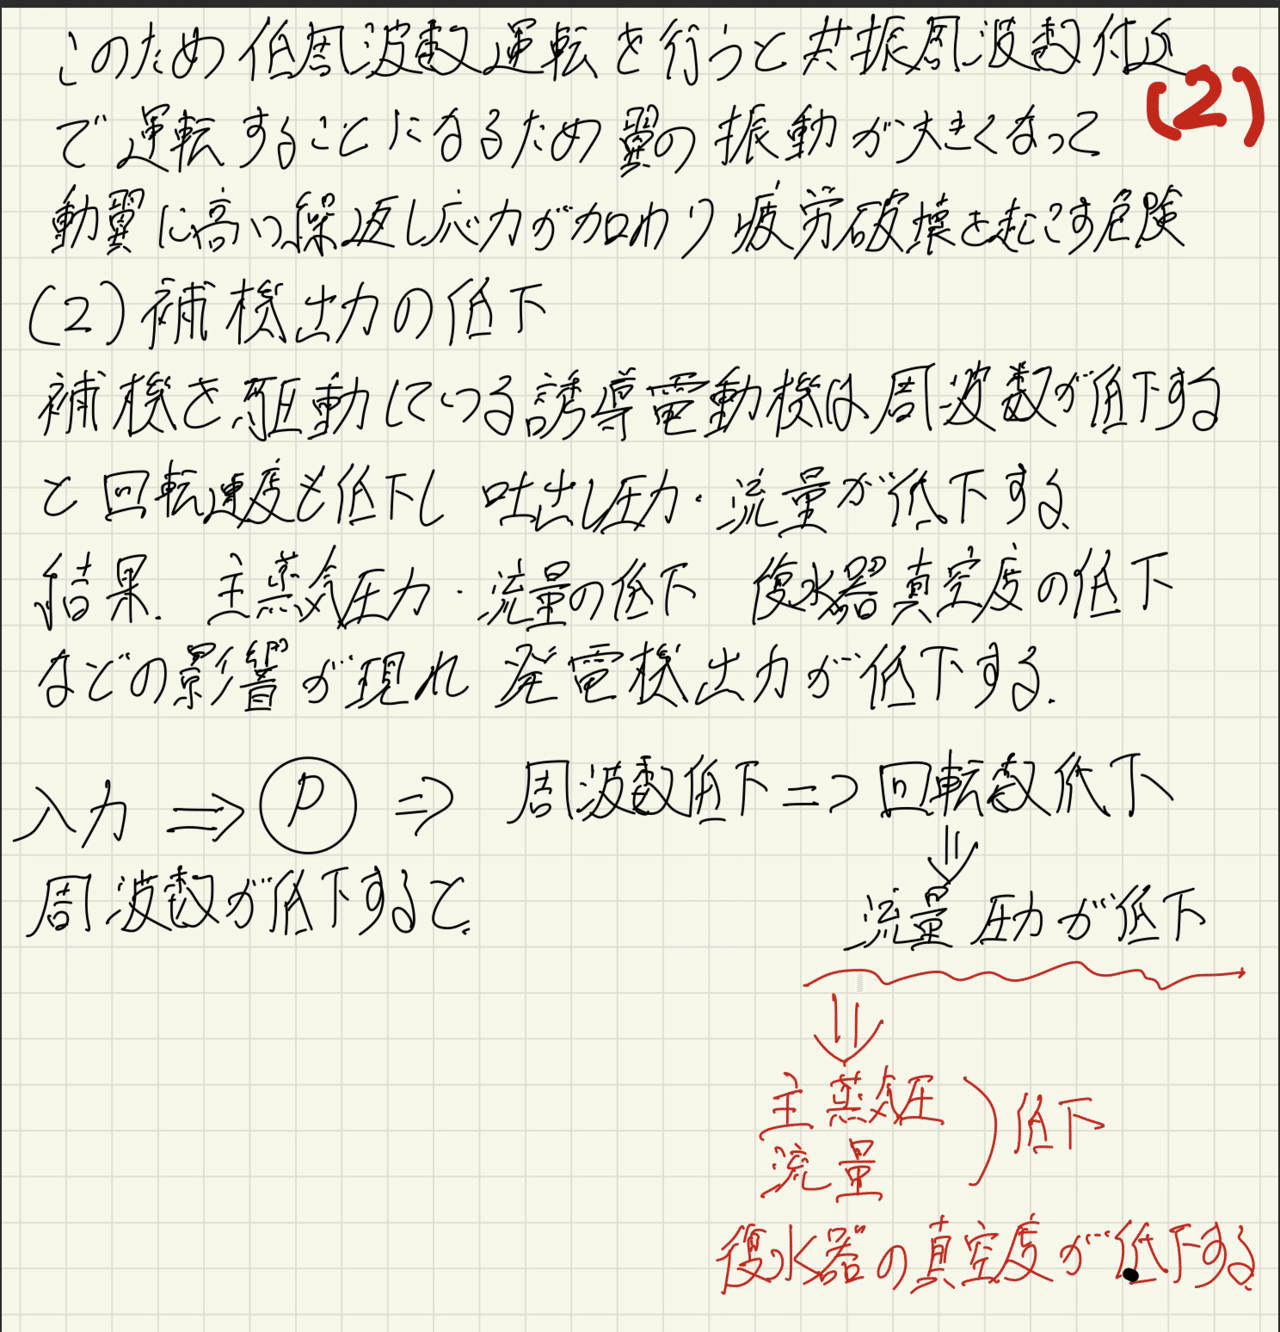 このため低周波数運転を行うと共振周波数付近
(2)
で運転することになるため翼の振動が大きくなって
動翼に高い繰返し応力が加わり疲労破壊を起こす危険
(2)補機出力の低下
補機を駆動している誘導電動機は周波数が低下する
と回転速度も低下し 吐出し圧力・流量が低下する
結果. 主蒸気圧力・流量の低下 復水器真空度の低下
などの影響が現れ 発電機出力が低下する.
入力 ⇒ P ⇒ 周波数低下 ⇒ 回転数低下
⇓
周波数が低下すると
流量 圧力が低下
⇓
主蒸気圧
流量
) 低下
復水器の真空度が低下する